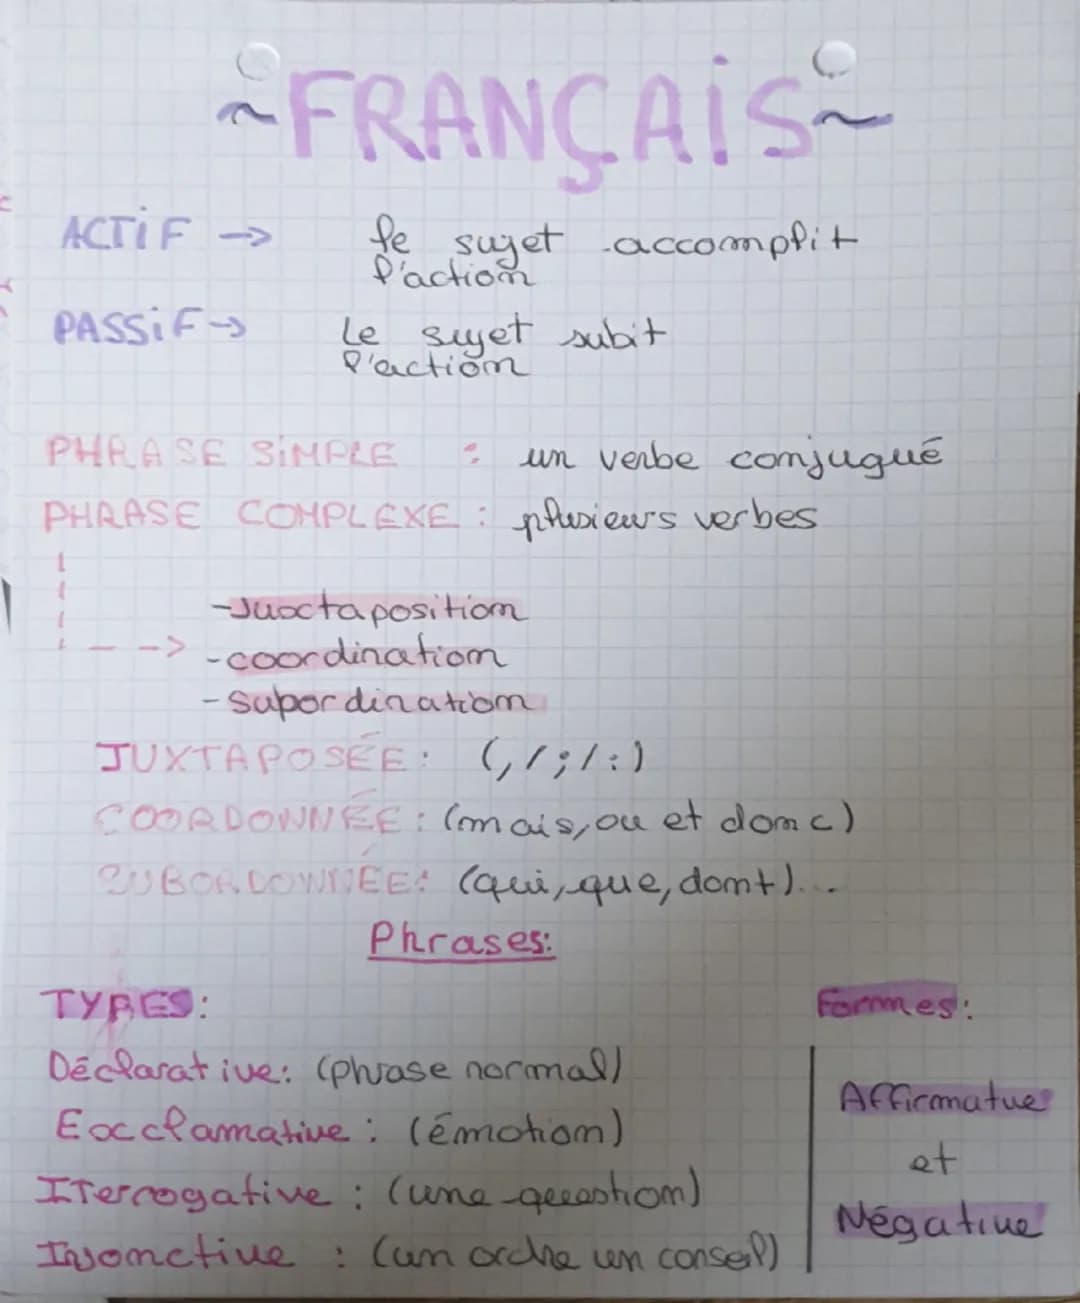 ~FRANÇAIS~
ACTIF → le sujet accomplit
l'action
PASSIF → Le sujet subit
l'action
PHRASE SIMPLE : un verbe conjugué
PHRASE COMPLEXE : plusieurs verbes
-Juxtaposition
-coordination
-subordination
JUXTAPOSÉE: (,/;/:)
COORDONNÉE: (mais, ou et donc)
SUBORDONNÉE: (qui, que, dont)...
Phrases:
TYPES:
Déclarative: (phrase normal)
Exclamative: (émotion)
ITerrogative: (une question)
Injonctive : (un ordre un conseil)
Formes:
Affirmatue
et
Négative